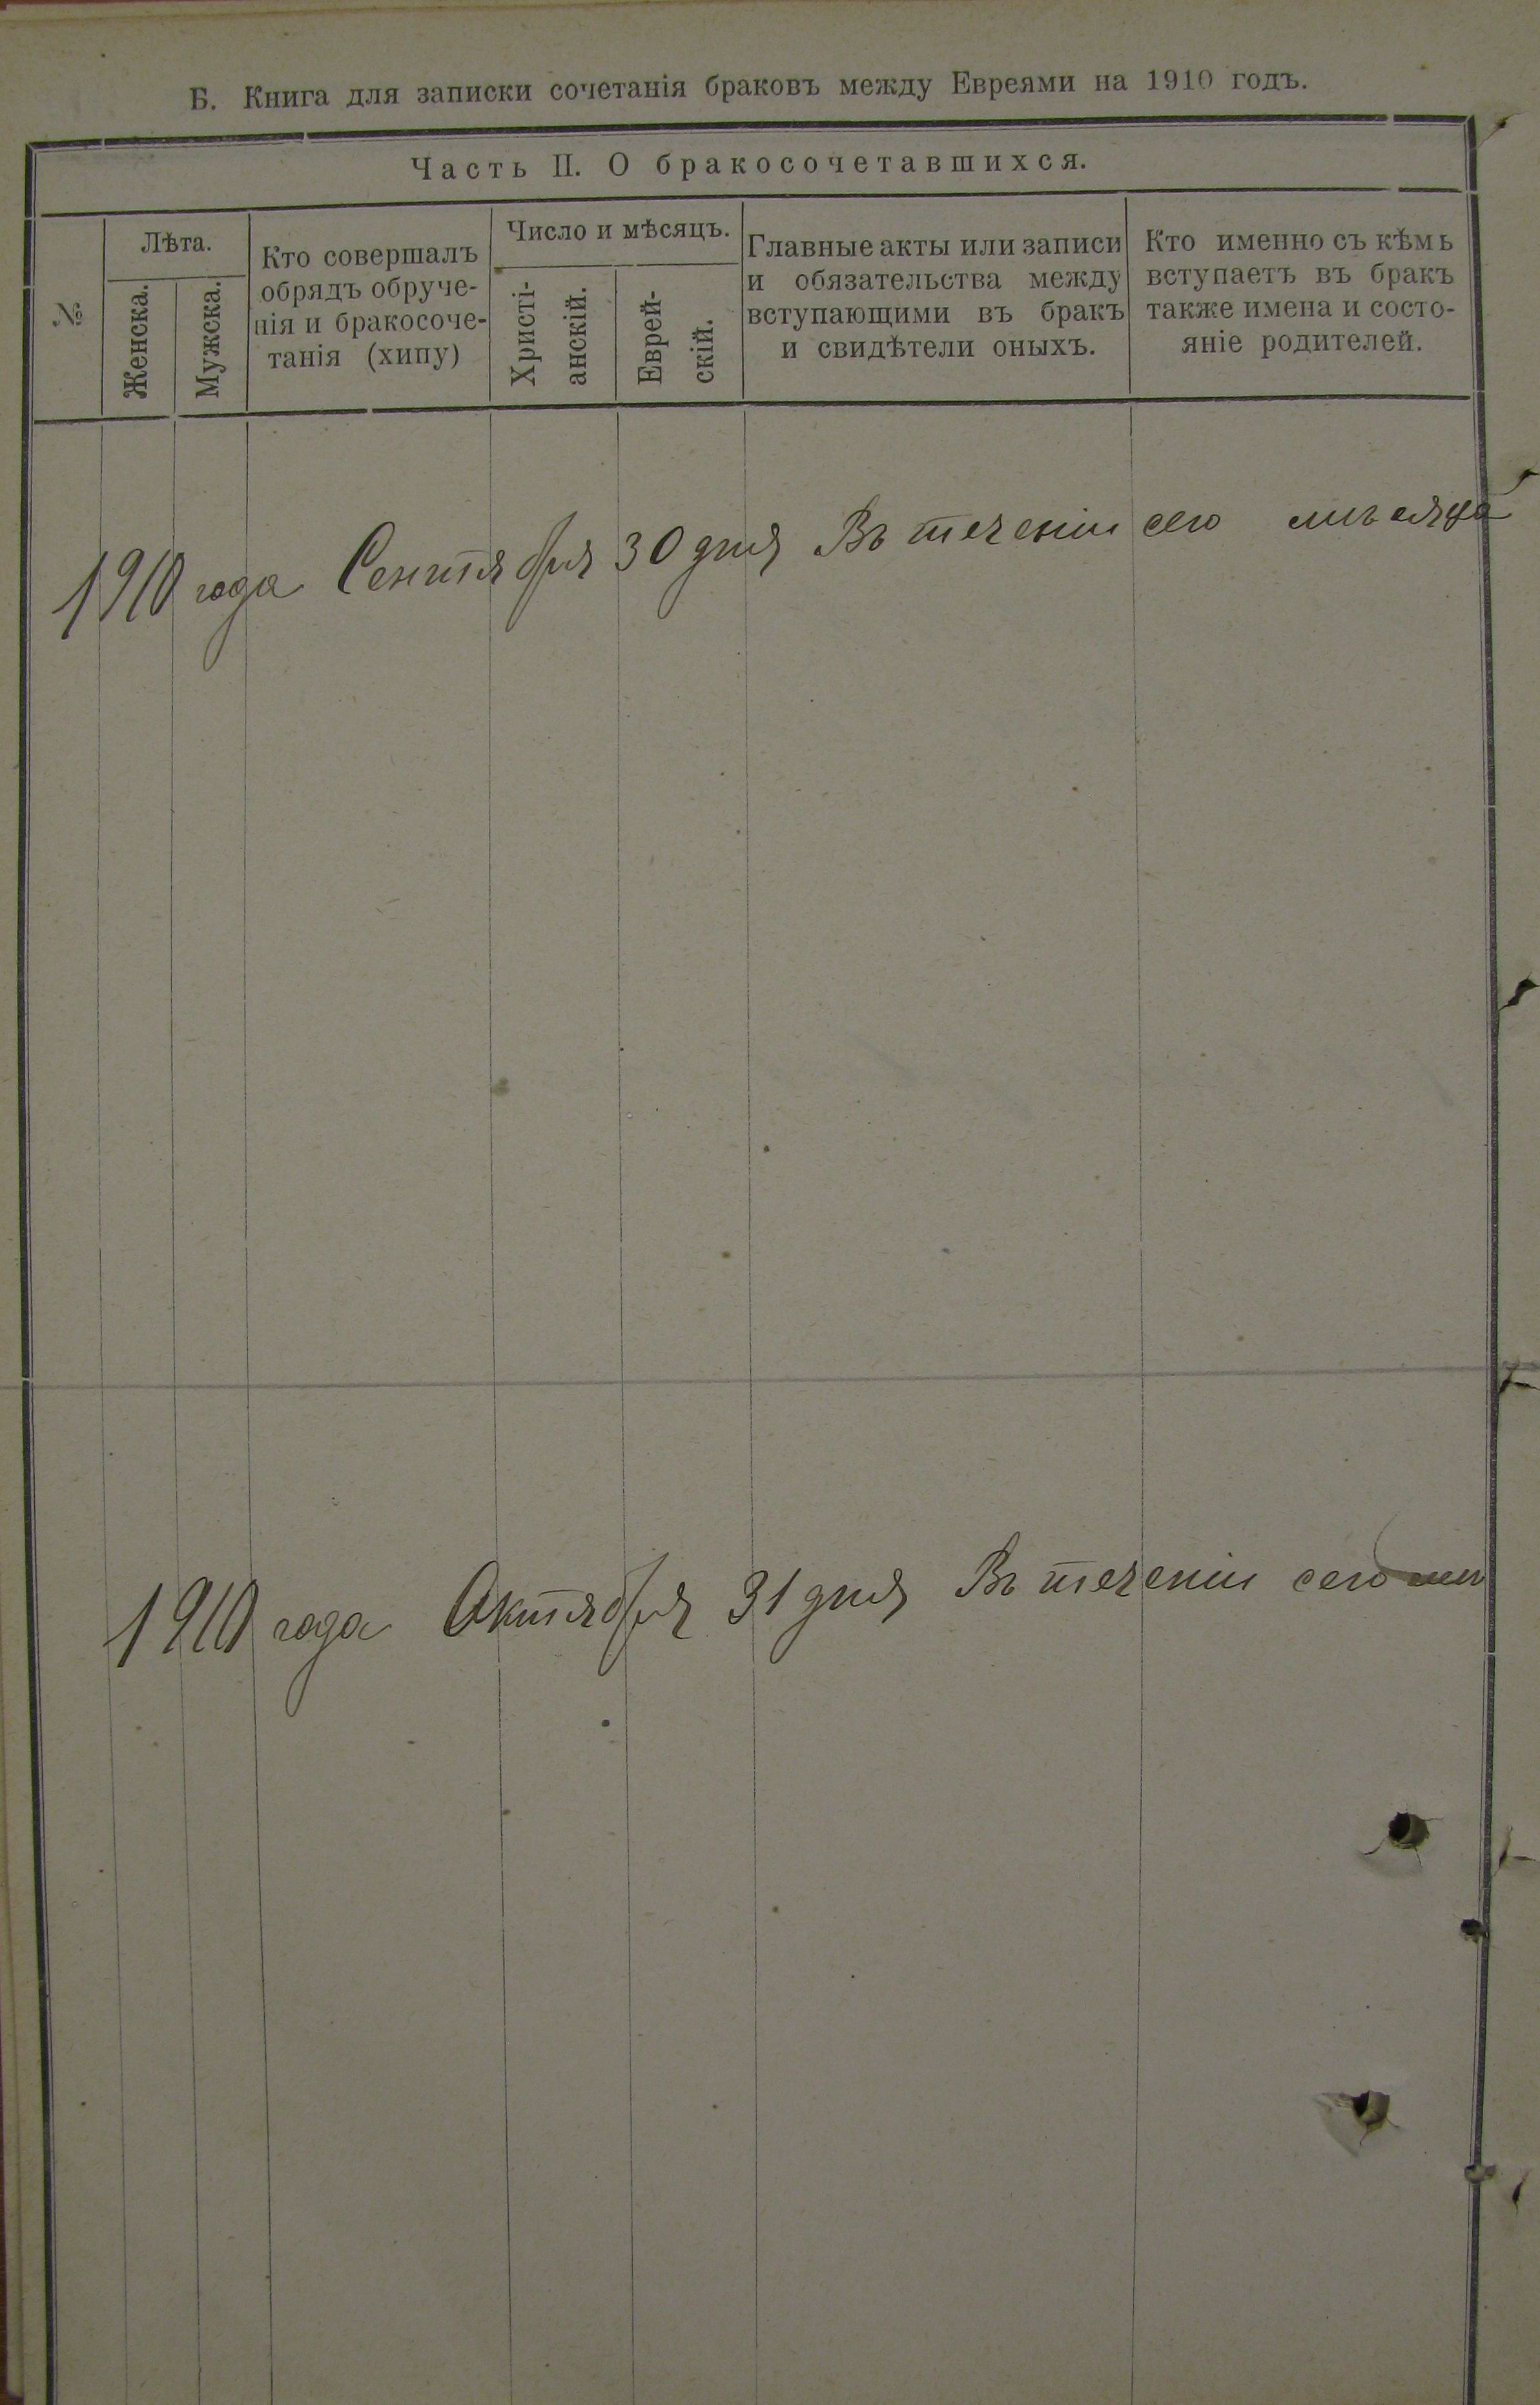 Б. Книга для записки сочетанія браковъ между Евреями на 1910 годъ.
Часть II. О бракосочетавшихся.
№
Лѣта.
Женска.
Мужска.
Кто совершалъ
обрядъ обруче-
нія и бракосоче-
танія (хипу)
Число и мѣсяцъ.
Христі-
анскій.
Еврей-
скій.
Главные акты или записи
и обязательства между
вступающими въ бракъ
и свидѣтели оныхъ.
Кто именно съ кѣмъ
вступаетъ въ бракъ
также имена и состо-
яніе родителей.
1910 года Сентября 30 дня Въ теченіи сего мѣсяца
1910 года Октября 31 дня Въ теченіи сего